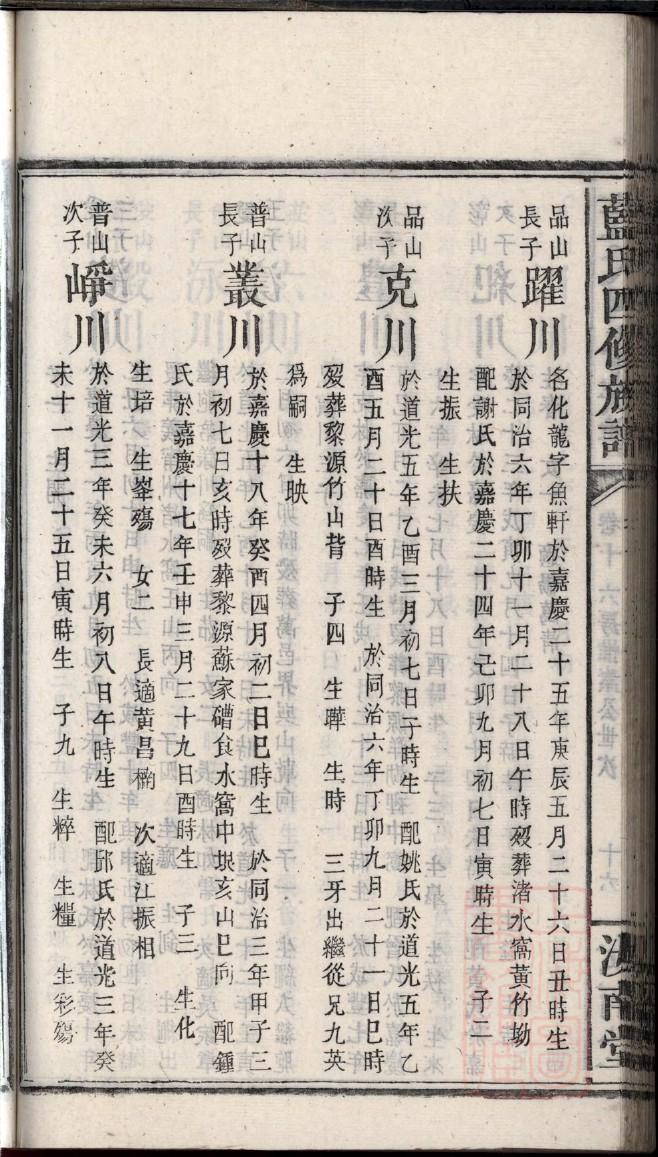 藍氏四修族譜
卷十六 房惟素公世次
十六
汝南堂
品山長子 躍川
名化龍字魚軒於嘉慶二十五年庚辰五月二十六日丑時生
於同治六年丁卯十一月二十八日午時歿葬渚水窩黃竹坳
配謝氏於嘉慶二十四年己卯九月初七日寅時生 子二
生振 生扶
品山次子 克川
於道光五年乙酉三月初七日子時生 配姚氏於道光五年乙
酉五月二十日酉時生 於同治六年丁卯九月二十一日巳時
歿葬黎源竹山背 子四 生曄 生時 三牙出繼從兄九英
為嗣 生映
普山長子 叢川
於嘉慶十八年癸酉四月初二日巳時生 於同治三年甲子三
月初七日亥時歿葬黎源蘇家磄食水窩中垠亥山巳向 配鍾
氏於嘉慶十七年壬申三月二十九日酉時生 子三 生化
生培 生峯殤 女二 長適黃昌橗 次適江振相
普山次子 崢川
於道光三年癸未六月初八日午時生 配邱氏於道光三年癸
未十一月二十五日寅時生 子九 生粹 生糧 生彩殤